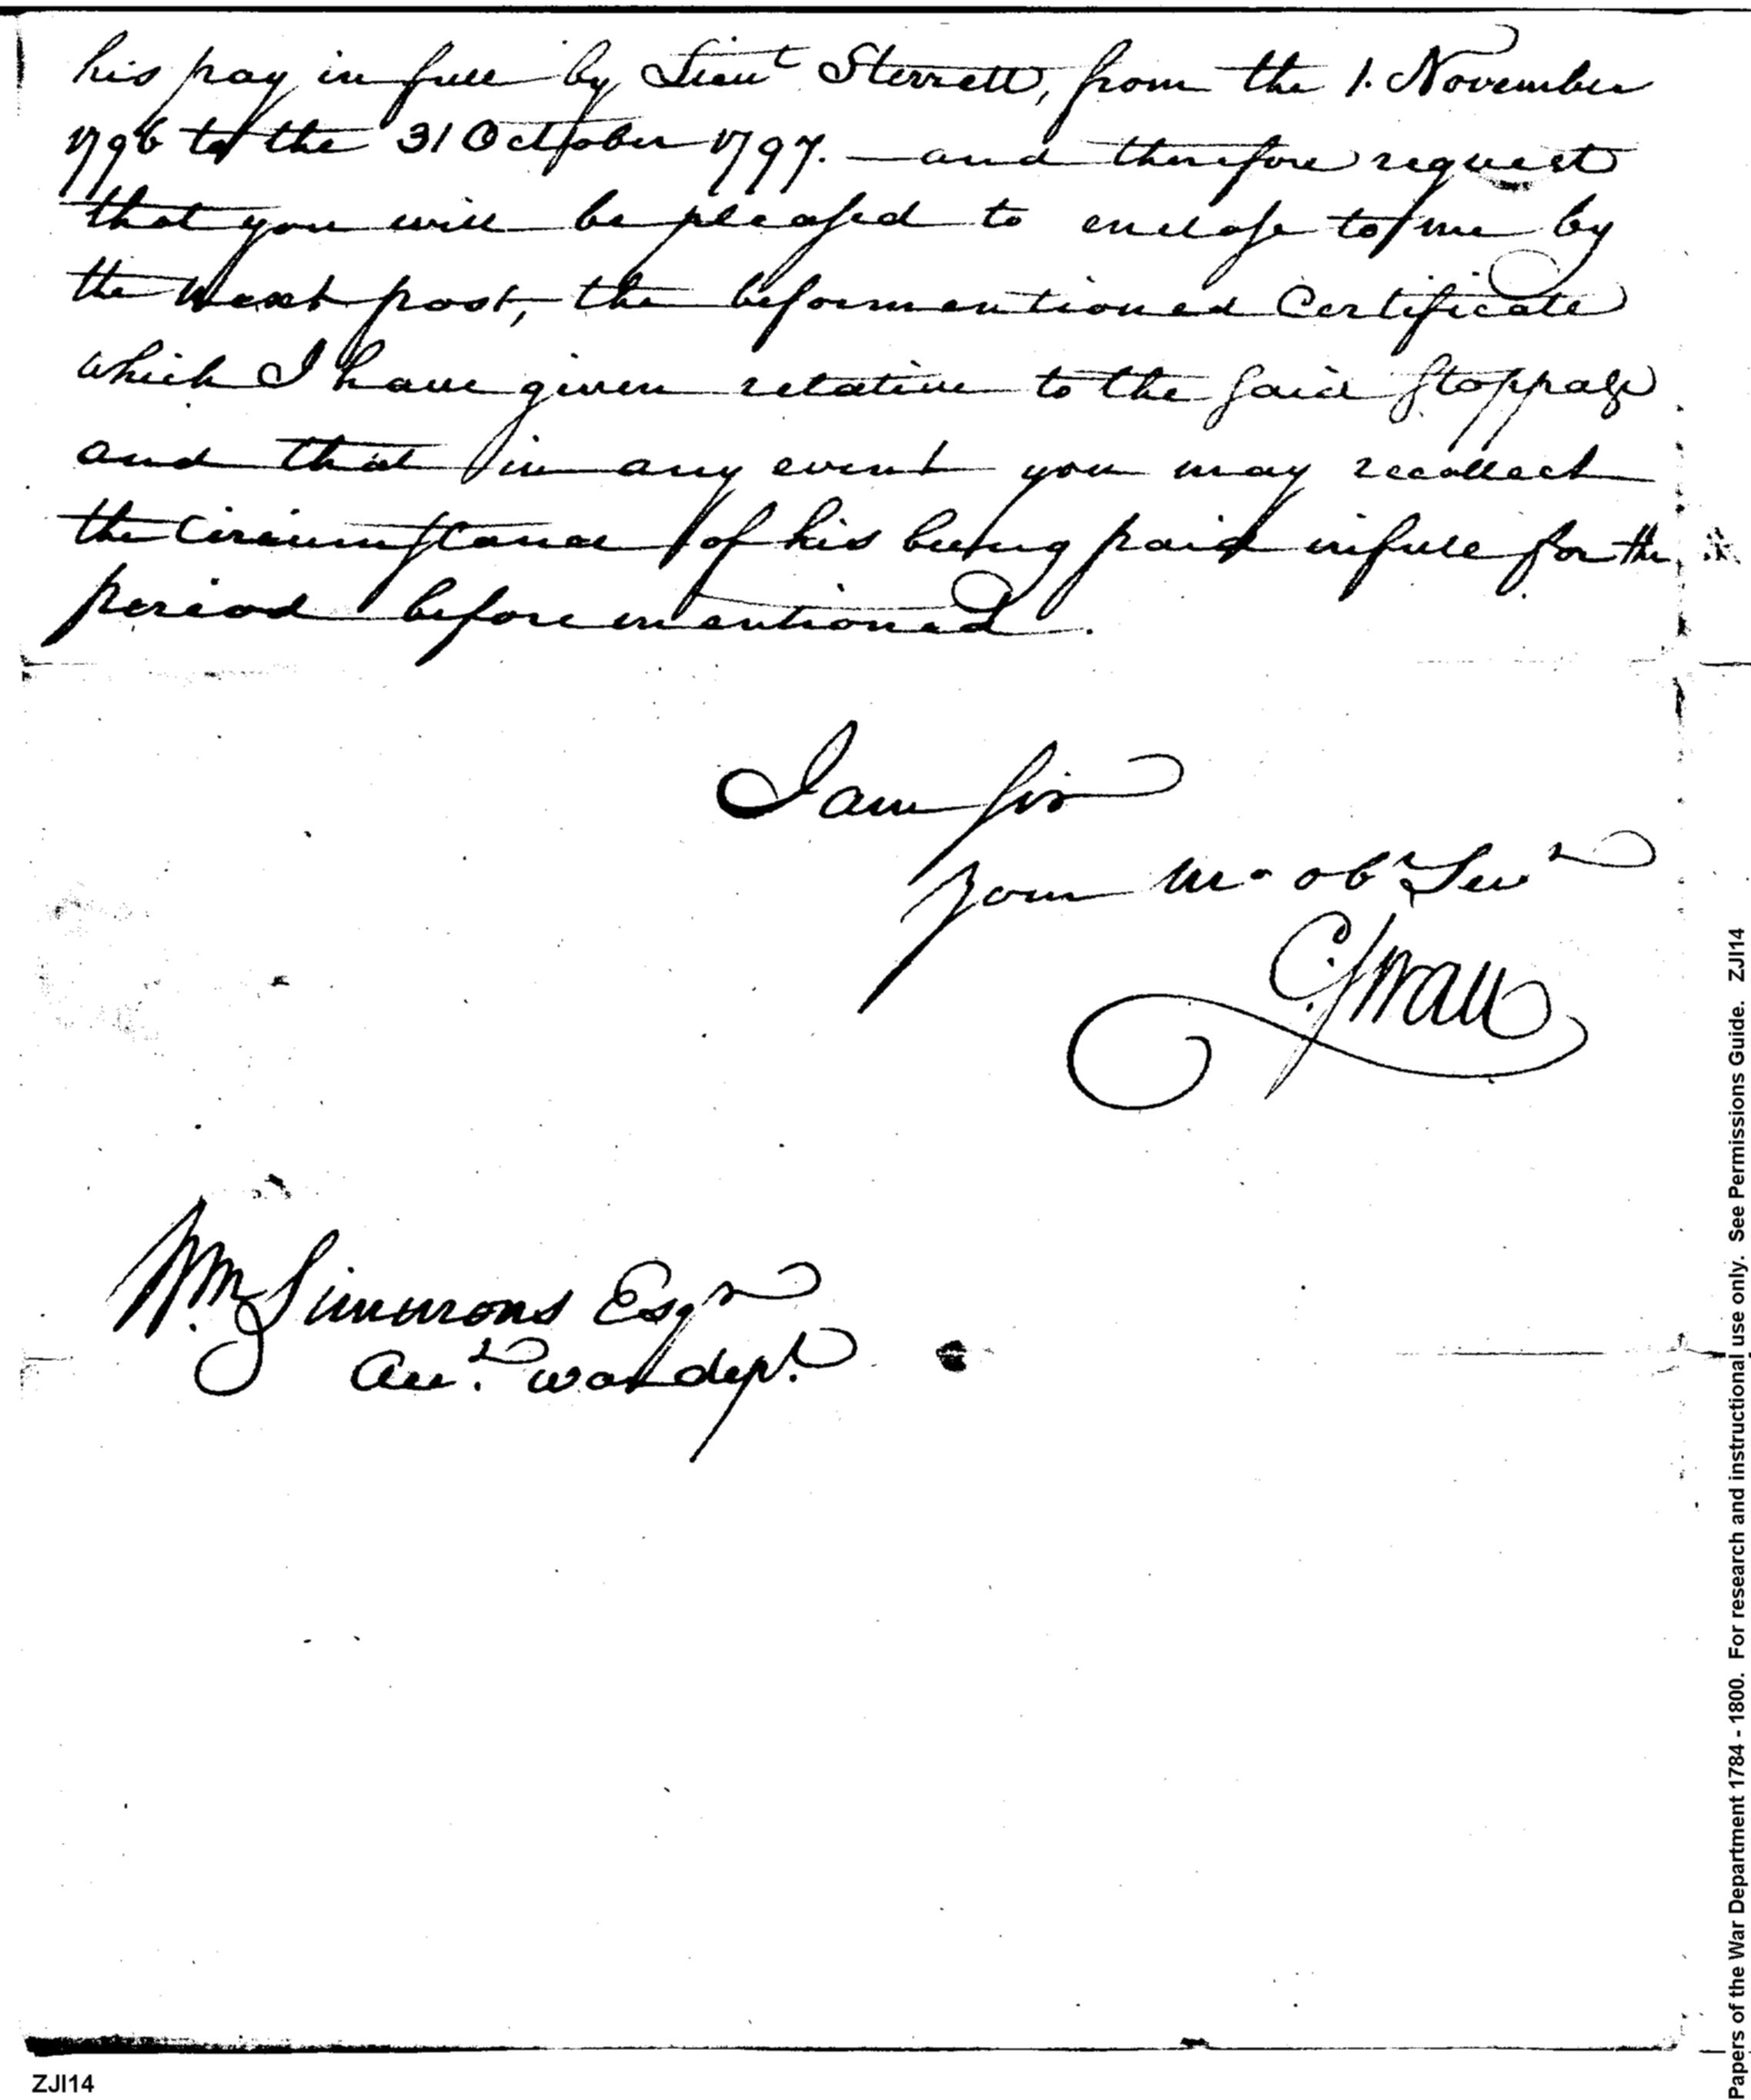 his pay in full by Lieut Sterrett, from the 1. November
1796 to the 31 October 1797. — and therefore request
that you will be pleased to enclose to me by
the next post, the beformentioned Certificate
which I have given relative to the said stoppage
and that in any event you may recollect
the Circumstance of his being paid in full for the
period beforementioned.
I am Sir
Your Mo ob Ser
C. Swan
Wm Simmons Esqr
Acct. War dept.
ZJI14
Papers of the War Department 1784 - 1800. For research and instructional use only. See Permissions Guide. ZJI14